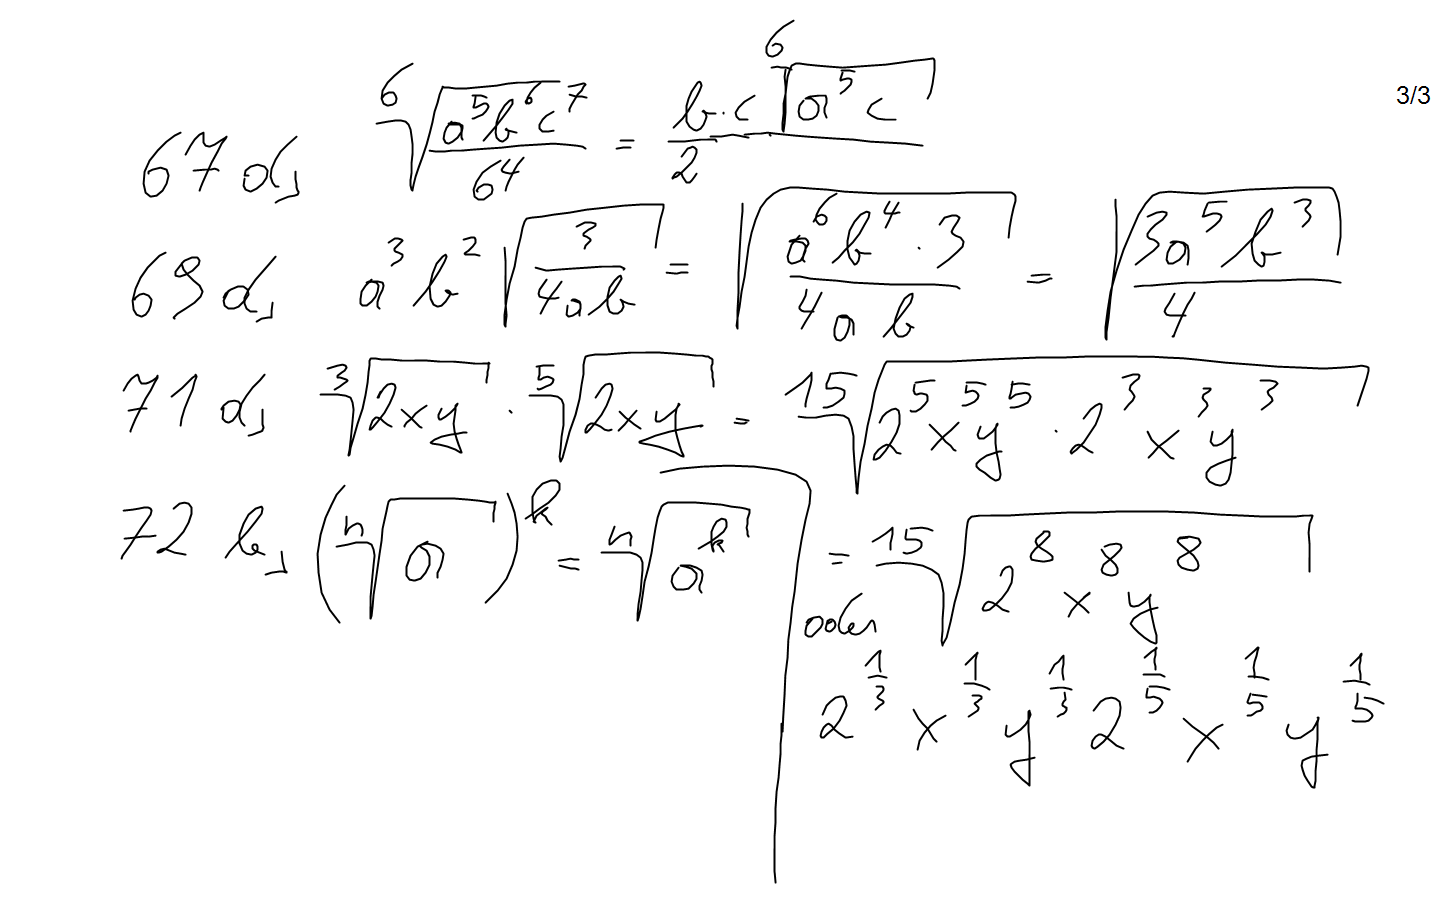 3/3
67 d) ⁶√(a⁵b⁶c⁷/64) = (b·c ⁶√(a⁵c))/2
69 d) a³b² √(3/(4ab)) = √((a⁶b⁴·3)/(4ab)) = √((3a⁵b³)/4)
71 d) ³√(2xy) · ⁵√(2xy) = ¹⁵√(2⁵x⁵y⁵ · 2³x³y³)
= ¹⁵√(2⁸x⁸y⁸)
oder
2^(1/3) x^(1/3) y^(1/3) 2^(1/5) x^(1/5) y^(1/5)
72 b) (ⁿ√a)^k = ⁿ√(a^k)